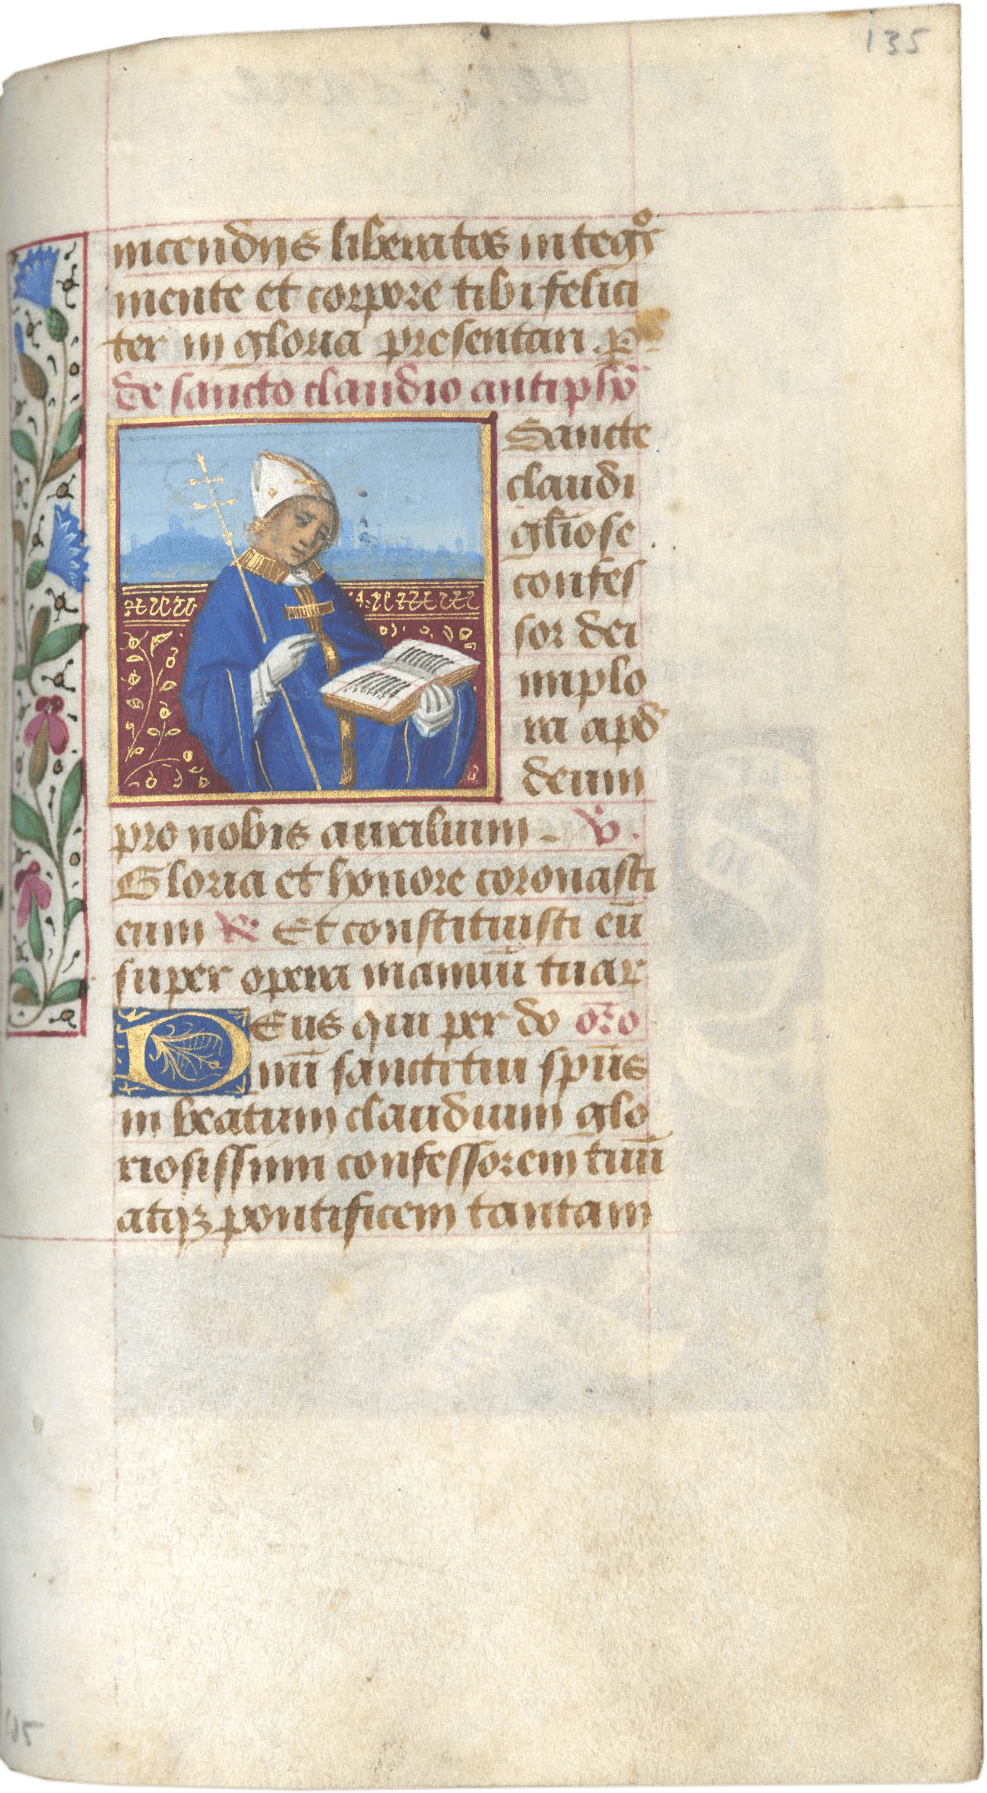 135
incendiis liberatos integro
mente et corpore tibi felici
ter in gloria presentari. p
de sancto claudio antiphō
Sancte
claudi
gliōse
confes
sor dei
implo
ra apd
deum
pro nobis auxilium. V.
Gloria et honore coronasti
eum R. Et constituisti eū
super opera manuū tuar
Deus qui per do oro
nū sanctitui spūs
in beatum claudium glo
riosissimum confessorem tuū
atqz pontificem tantam